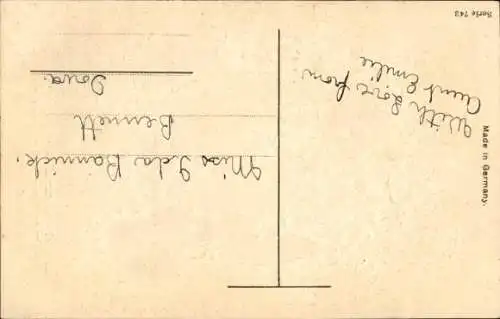 Serie 743
With Love from
Aunt Emilie
Miss Ida Bannick.
Bennett
Iowa.
Made in Germany.